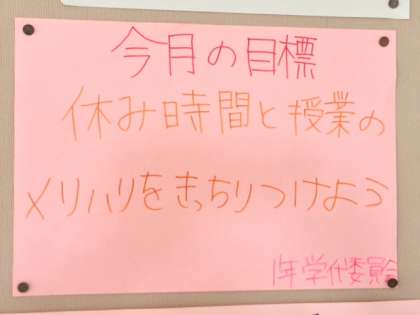 今月の目標
休み時間と授業の
メリハリをきっちりつけよう
1年学代委員会